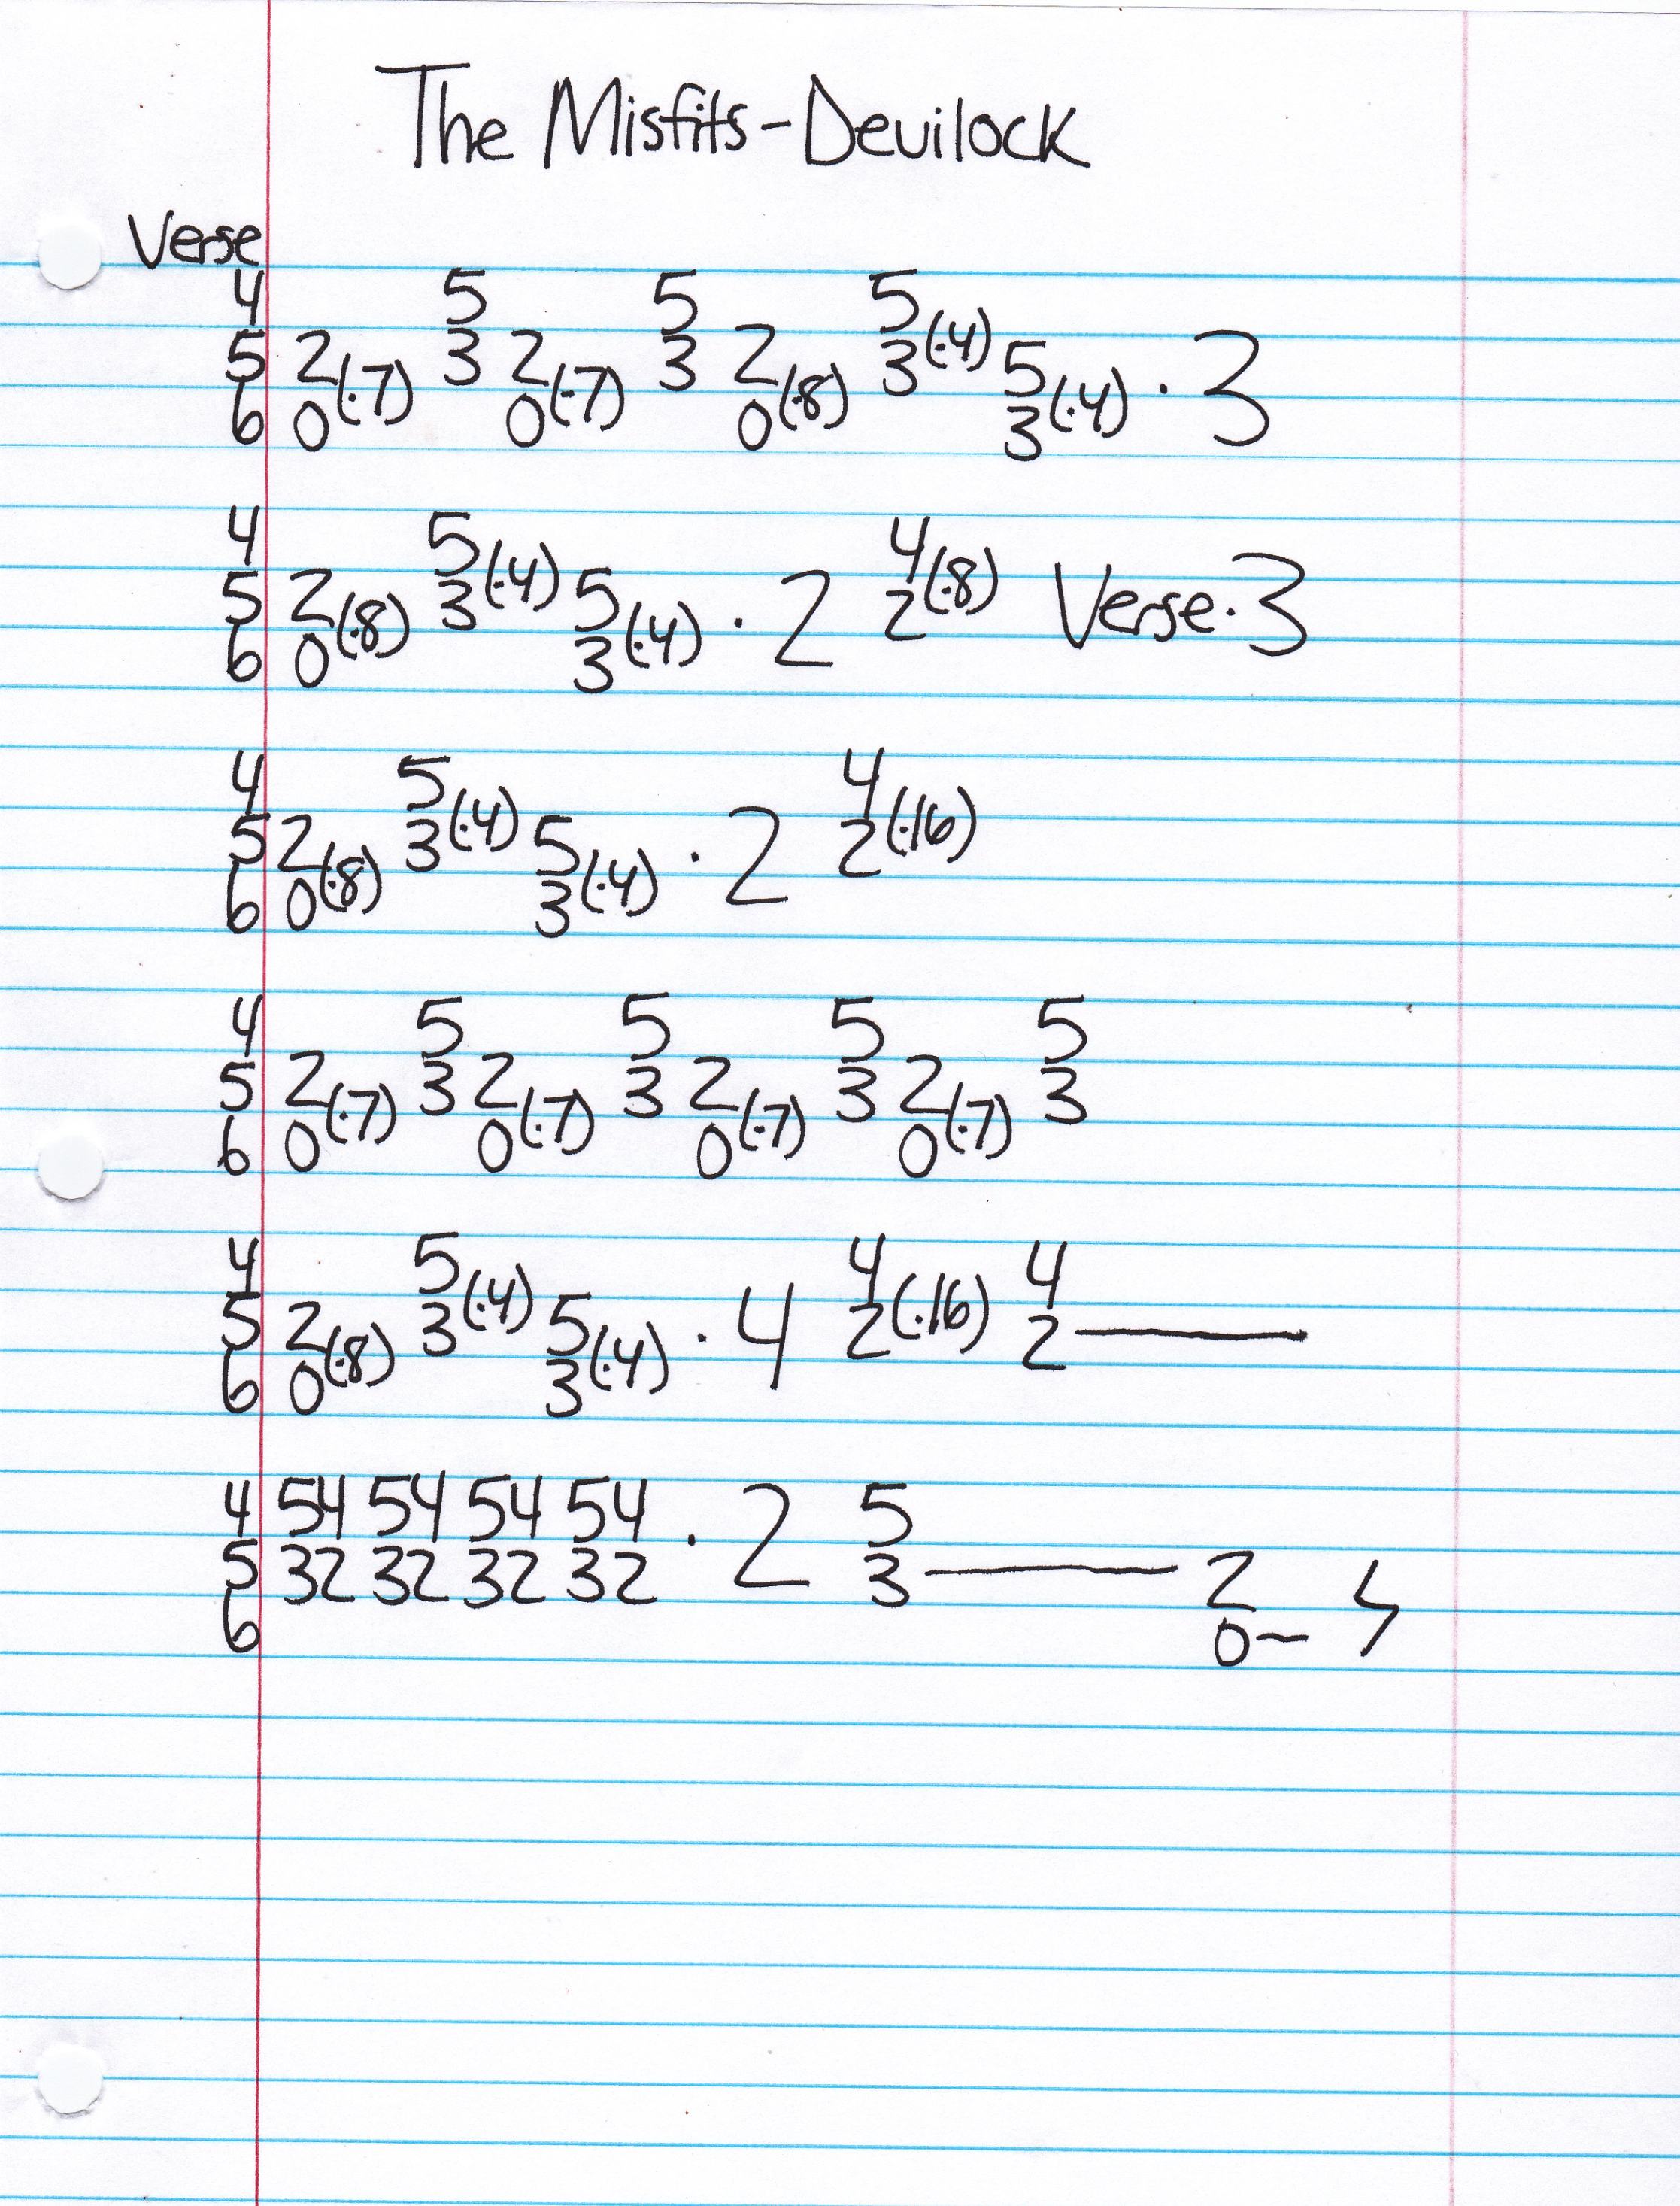 The Misfits-Devilock
Verse
4 5 5 5
5 2(·7) 3 2(·7) 3 2(·8) 3(·4) 5(·4) ·3
6 0 0 0 3
4 5 4
5 2(·8) 3(·4) 5(·4) ·2 2(·8) Verse·3
6 0 3
4 5 4
5 2(·8) 3(·4) 5(·4) ·2 2(·16)
6 0 3
4 5 5 5 5
5 2(·7) 3 2(·7) 3 2(·7) 3 2(·7) 3
6 0 0 0 0
4 5 4 4
5 2(·8) 3(·4) 5(·4) ·4 2(·16) 2—
6 0 3
4 54 54 54 54 5
5 32 32 32 32 ·2 3— 2
6 0~